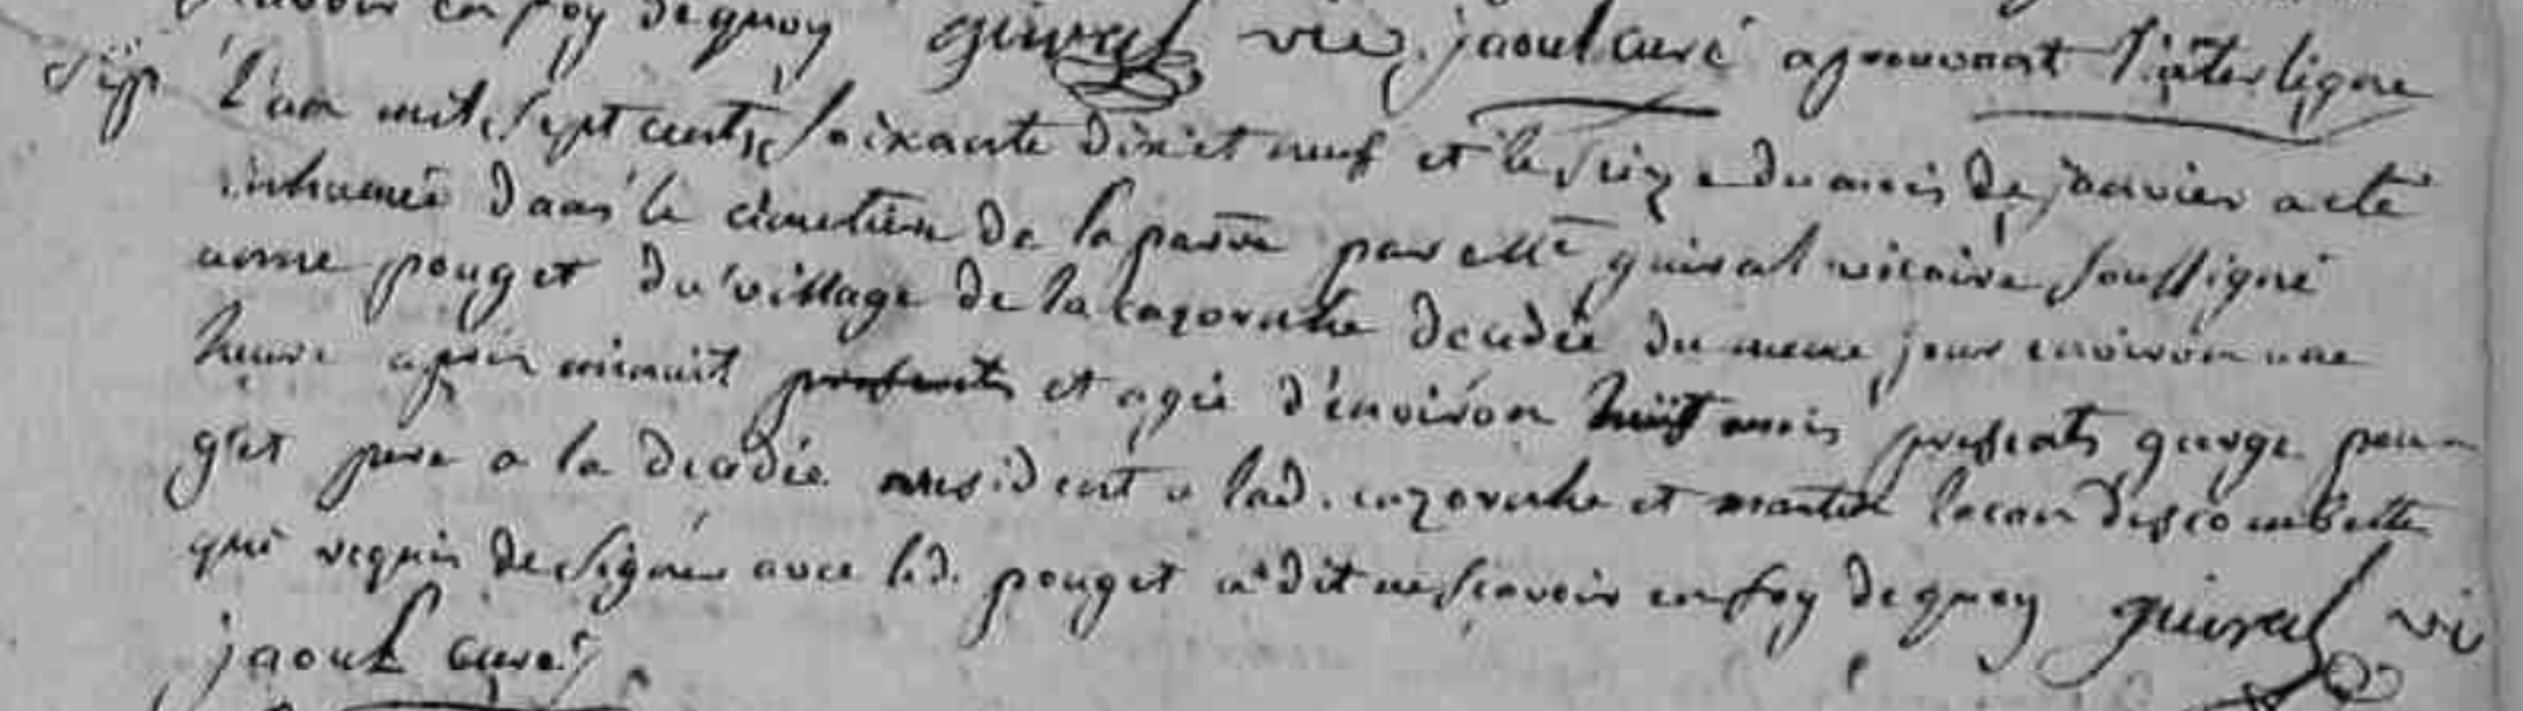 en foy de quoy guiral vic. jaoul curé aprouvant l'interligne
l'an mil sept cents soixante dix et neuf et le seize du mois de janvier a eté
inhumée dans le cimetiere de la parre par Mre guiral vicaire soussigné
anne pouget du village de la cazornhe décédée du meme jour environ une
heure aprés minuit presents et agée d'environ huit mois presents george pou-
get pere a la décédée resident a lad. cazornhe et martin lacan descombette
qui requis de signer avec led. pouget a dit ne scavoir en foy de quoy guiral vi
jaoul curé